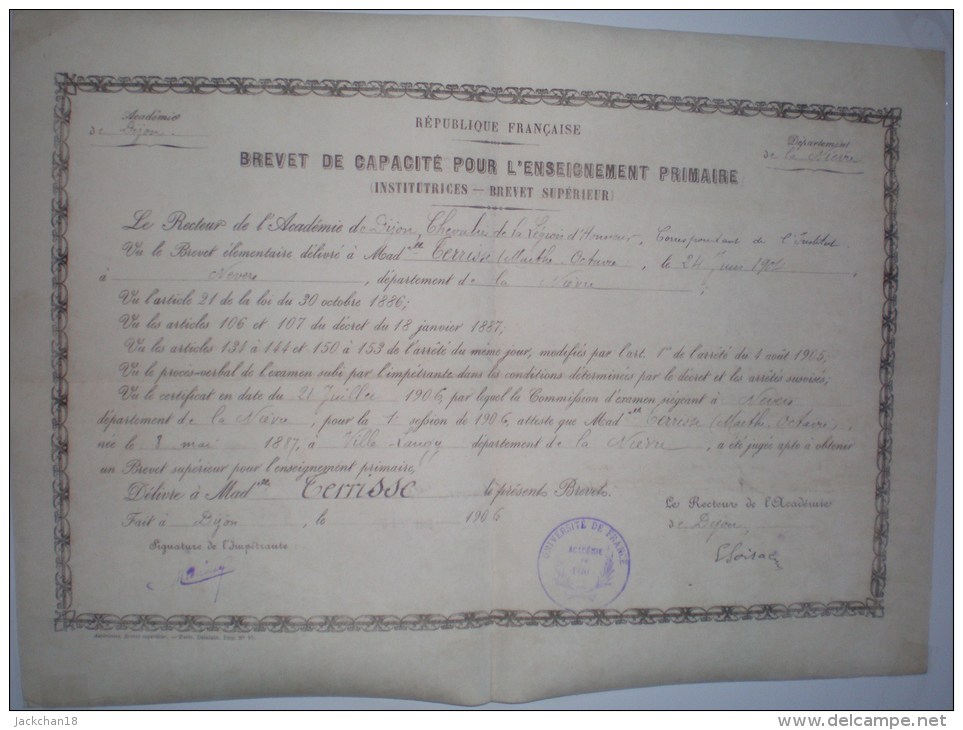 Académie
de Dijon
RÉPUBLIQUE FRANÇAISE
Département
de la Nièvre
BREVET DE CAPACITÉ POUR L'ENSEIGNEMENT PRIMAIRE
(INSTITUTRICES — BREVET SUPÉRIEUR)
Le Recteur de l'Académie de Dijon, Chevalier de la Légion d'Honneur, Correspondant de l'Institut.
Vu le Brevet élémentaire délivré à Mad^lle Terrisse (Marthe-Octavie, le 24 Juin
à Nevers, département de la Nièvre;
Vu l'article 21 de la loi du 30 octobre 1886;
Vu les articles 106 et 107 du décret du 18 janvier 1887;
Vu les articles 134 à 144 et 150 à 153 de l'arrêté du même jour, modifiés par l'art. 1er de l'arrêté du 4 août 1905;
Vu le procès-verbal de l'examen subi par l'impétrante dans les conditions déterminées par le décret et les arrêtés susvisés;
Vu le certificat en date du 21 Juillet 1906, par lequel la Commission d'examen siégeant à Nevers
département de la Nièvre, pour la 1e session de 1906, atteste que Mad^lle Terrisse (Marthe-Octavie,
née le 8 mai 1887, à Ville Langy département de la Nièvre, a été jugée apte à obtenir
un Brevet supérieur pour l'enseignement primaire,
Délivre à Mad^lle Terrisse le présent Brevet.
Fait à Dijon, le 1906
Le Recteur de l'Académie
de Dijon,
Signature de l'Impétrante:
UNIVERSITÉ DE FRANCE
ACADÉMIE
DE
jackchan18
www.delcampe.net